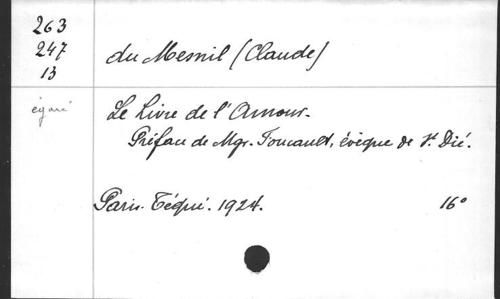 263
247
13
du Mesnil (Claude)
égaré
Le Livre de l'Amour.
Préface de Mgr. Foucault, évêque de St. Dié.
Paris. Téqui. 1924. 16°